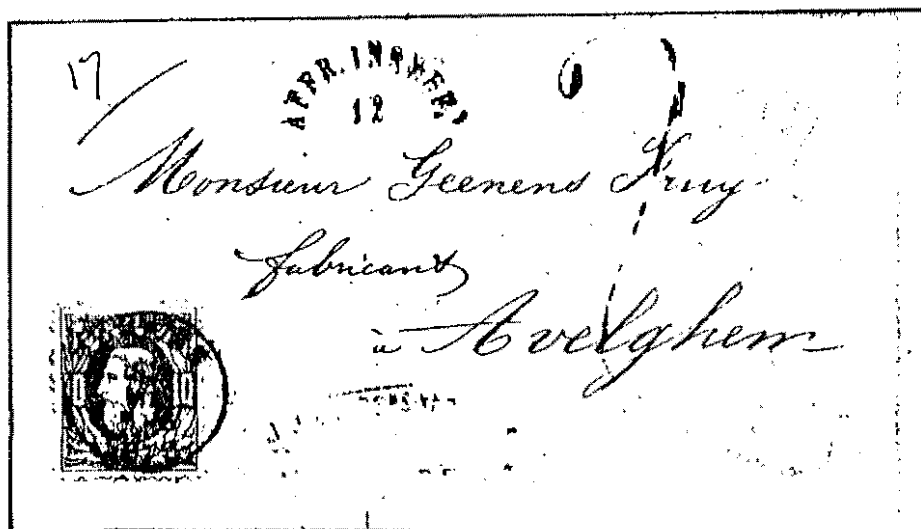 17
AFFR. INSUFF.
12
Monsieur Geenens Pruy
fabricant
à Avelghem
10 10